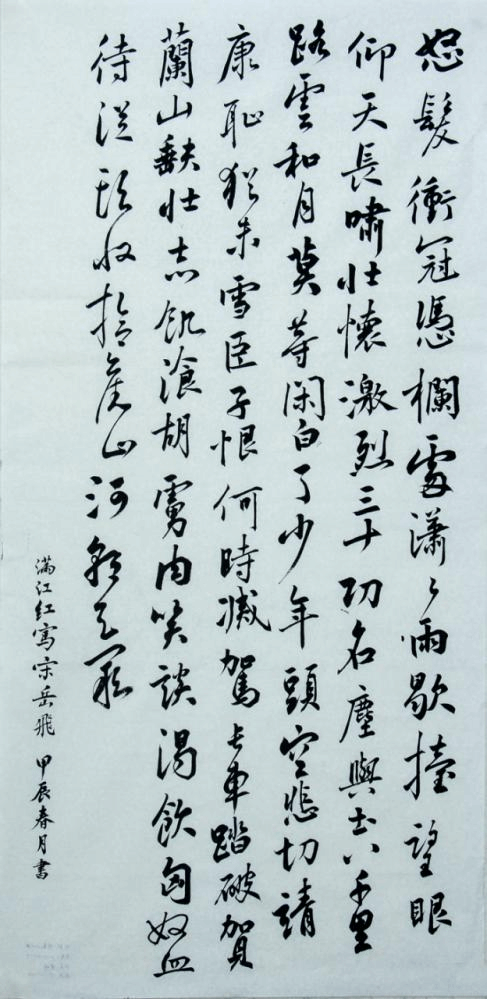 怒髮衝冠憑欄處瀟々雨歇擡望眼
仰天長嘯壯懷激烈三十功名塵與土八千里
路雲和月莫等閑白了少年頭空悲切靖
康恥猶未雪臣子恨何時滅駕長車踏破賀
蘭山缺壯志飢湌胡虜肉笑談渴飲匈奴血
待從頭收拾舊山河朝天闕
满江红寫宋岳飛 甲辰春月書